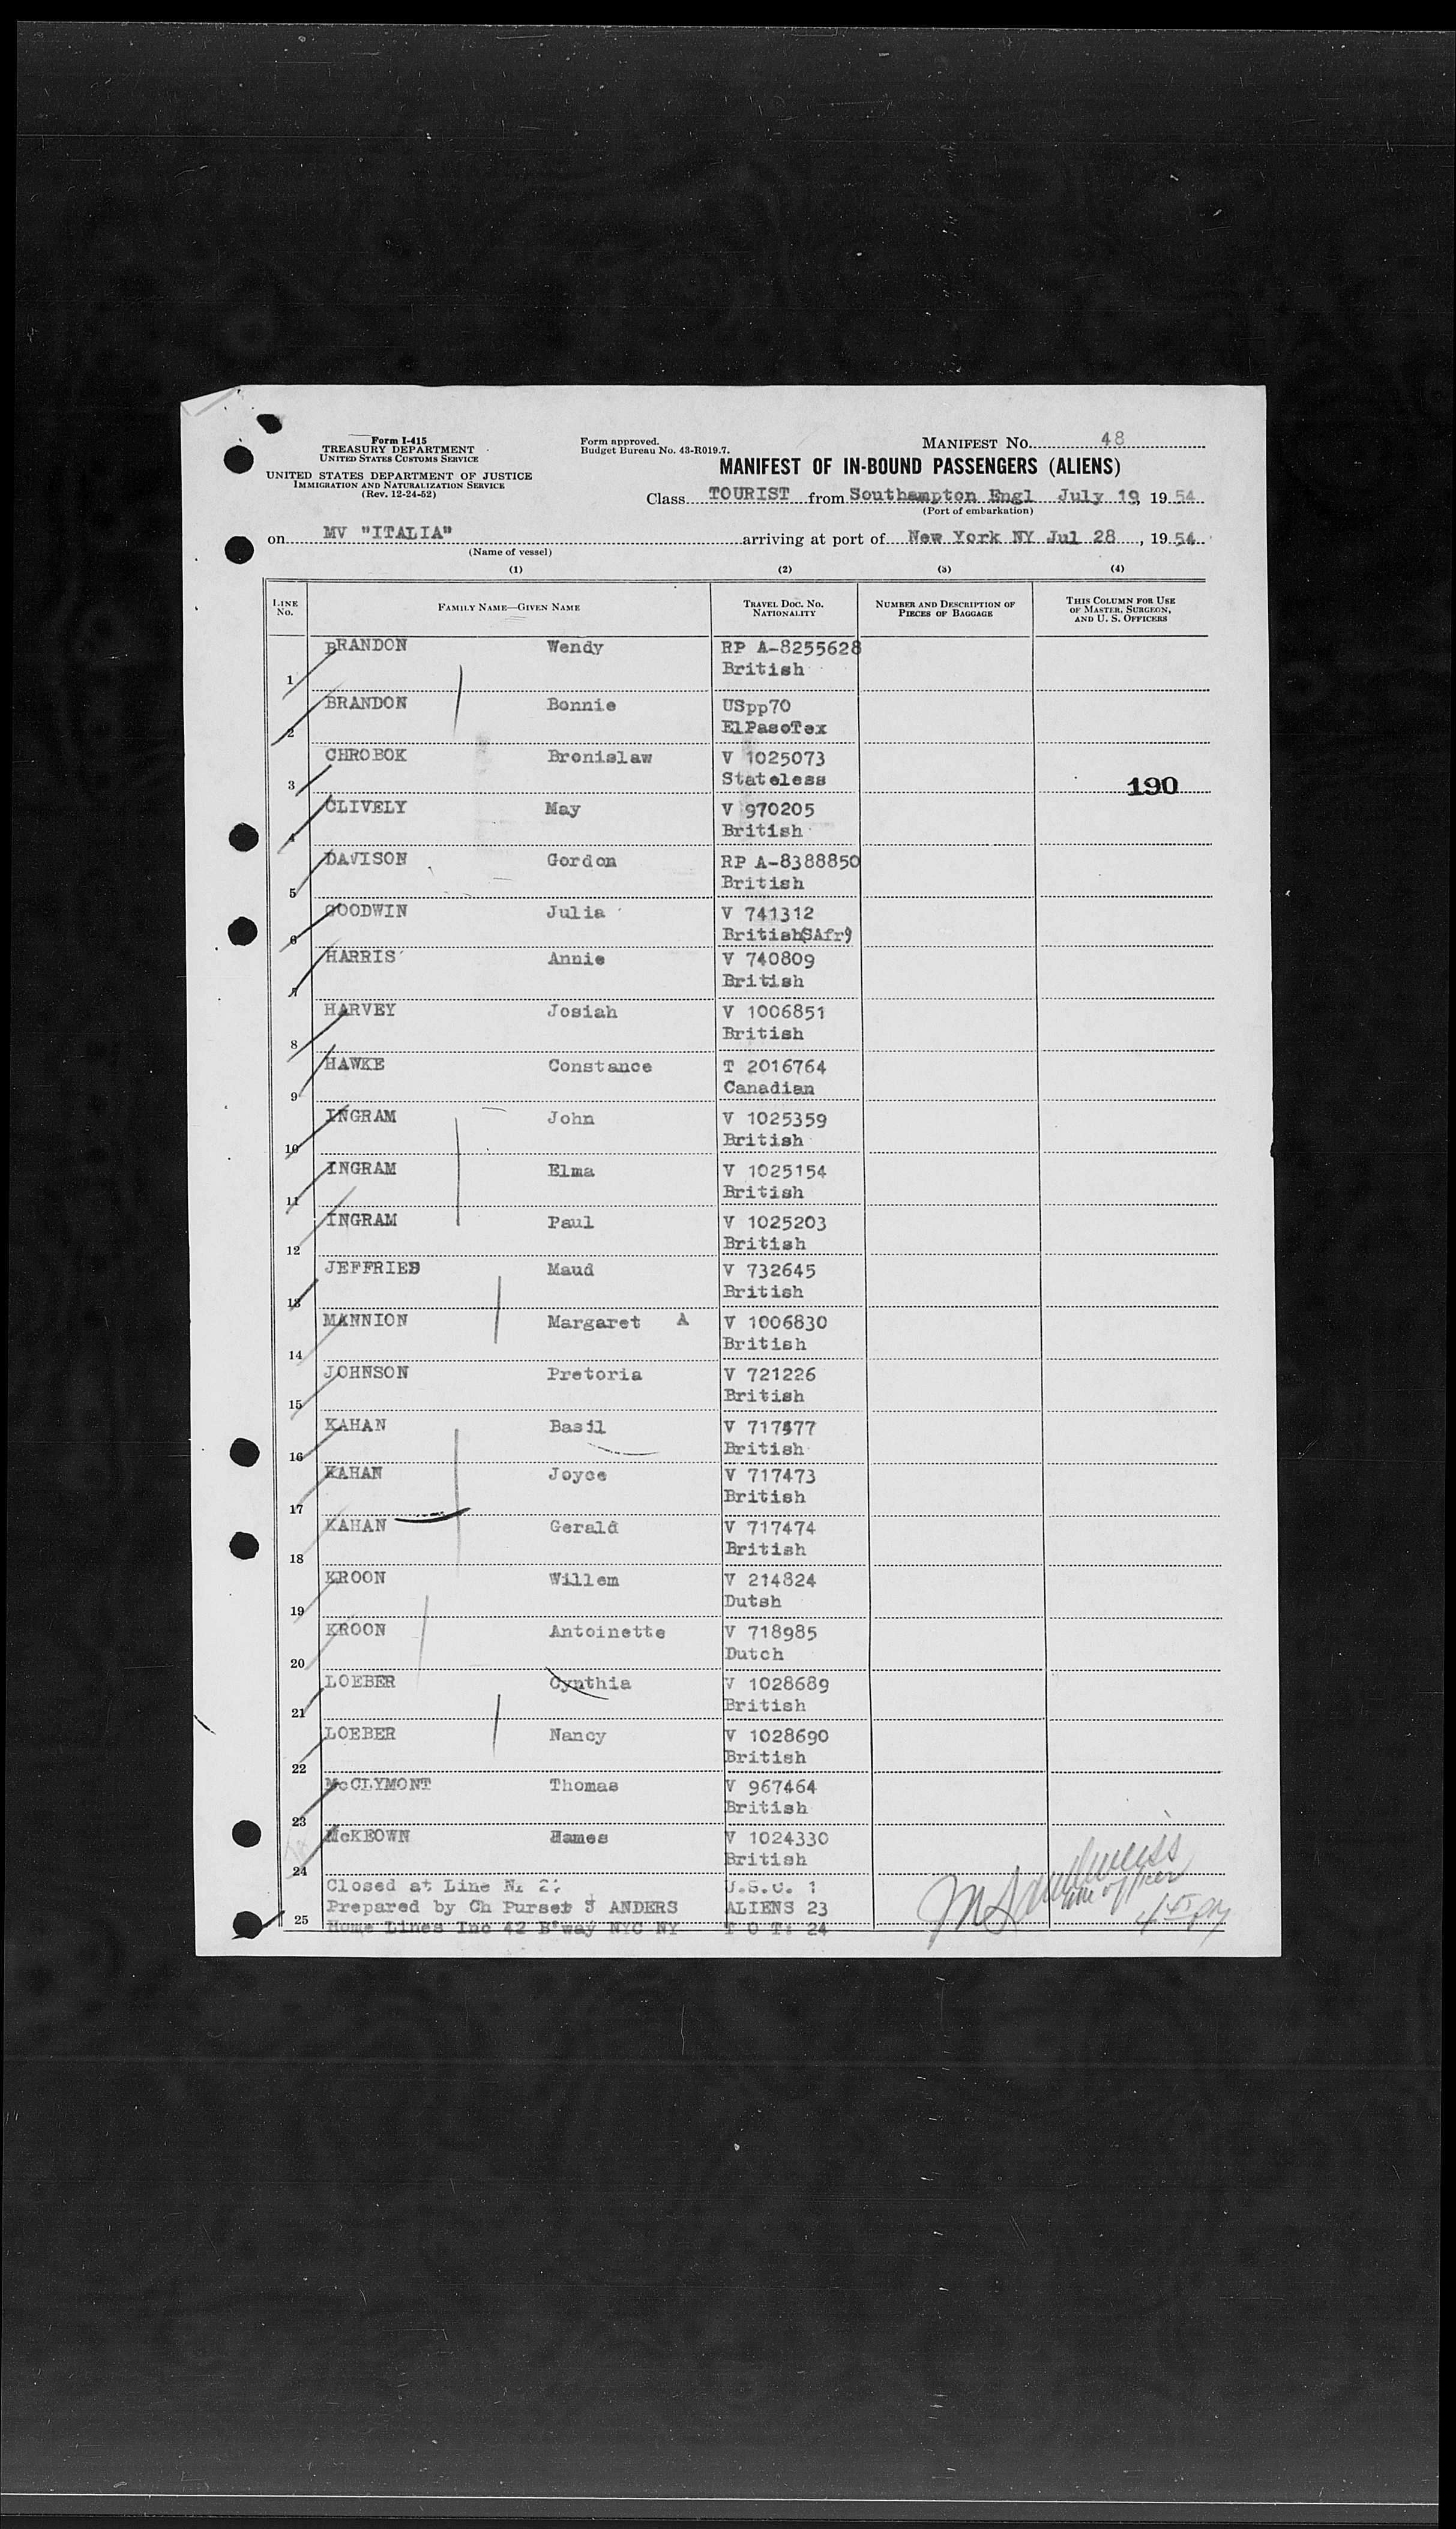 Form I-415
TREASURY DEPARTMENT
UNITED STATES CUSTOMS SERVICE
UNITED STATES DEPARTMENT OF JUSTICE
IMMIGRATION AND NATURALIZATION SERVICE
(Rev. 12-24-52)
Form approved.
Budget Bureau No. 43-R019.7.
MANIFEST NO. 48
MANIFEST OF IN-BOUND PASSENGERS (ALIENS)
Class TOURIST from Southampton Engl July 19, 19 54
(Port of embarkation)
on MV "ITALIA" arriving at port of New York NY Jul 28, 19 54
(Name of vessel)
(1) (2) (3) (4)
LINE NO. FAMILY NAME—GIVEN NAME TRAVEL DOC. NO. NATIONALITY NUMBER AND DESCRIPTION OF PIECES OF BAGGAGE THIS COLUMN FOR USE OF MASTER, SURGEON, AND U. S. OFFICERS
1 BRANDON Wendy RP A-8255628
British
2 BRANDON Bonnie USpp70
ElPasoTex
3 CHROBOK Bronislaw V 1025073
Stateless 190
4 CLIVELY May V 970205
British
5 DAVISON Gordon RP A-8388850
British
6 GOODWIN Julia V 741312
British(SAfr)
7 HARRIS Annie V 740809
British
8 HARVEY Josiah V 1006851
British
9 HAWKE Constance T 2016764
Canadian
10 INGRAM John V 1025359
British
11 INGRAM Elma V 1025154
British
12 INGRAM Paul V 1025203
British
13 JEFFRIES Maud V 732645
British
14 MANNION Margaret A V 1006830
British
15 JOHNSON Pretoria V 721226
British
16 KAHAN Basil V 717477
British
17 KAHAN Joyce V 717473
British
18 KAHAN Gerald V 717474
British
19 KROON Willem V 214824
Dutsh
20 KROON Antoinette V 718985
Dutch
21 LOEBER Cynthia V 1028689
British
22 LOEBER Nancy V 1028690
British
23 McCLYMONT Thomas V 967464
British
24 McKEOWN Hames V 1024330
British
Closed at Line Nr U.S.C. 1
Prepared by Ch Purser J ANDERS ALIENS 23
25 Home Lines Inc 42 B'way NYC NY T O T: 24